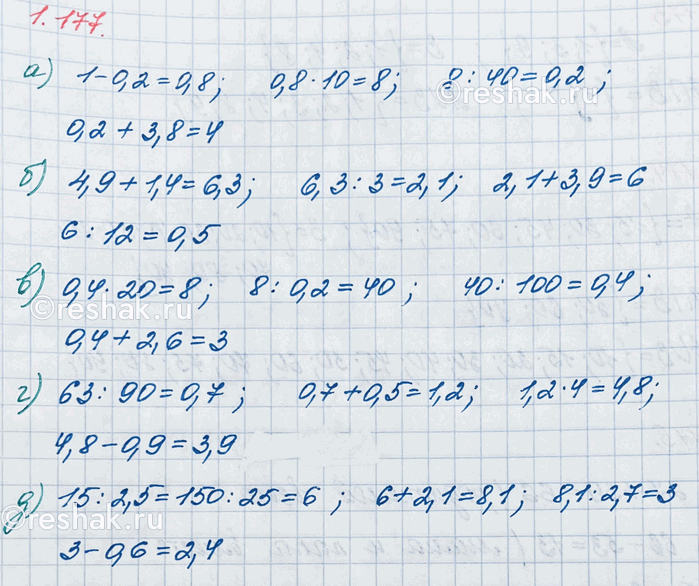 1.177.
а) 1-0,2=0,8; 0,8·10=8; 8:40=0,2;
0,2+3,8=4
б) 4,9+1,4=6,3; 6,3:3=2,1; 2,1+3,9=6
6:12=0,5
в) 0,4·20=8; 8:0,2=40; 40:100=0,4;
0,4+2,6=3
г) 63:90=0,7; 0,7+0,5=1,2; 1,2·4=4,8;
4,8-0,9=3,9
д) 15:2,5=150:25=6; 6+2,1=8,1; 8,1:2,7=3
3-0,6=2,4
reshak.ru
reshak.ru
reshak.ru
reshak.ru
reshak.ru
reshak.ru